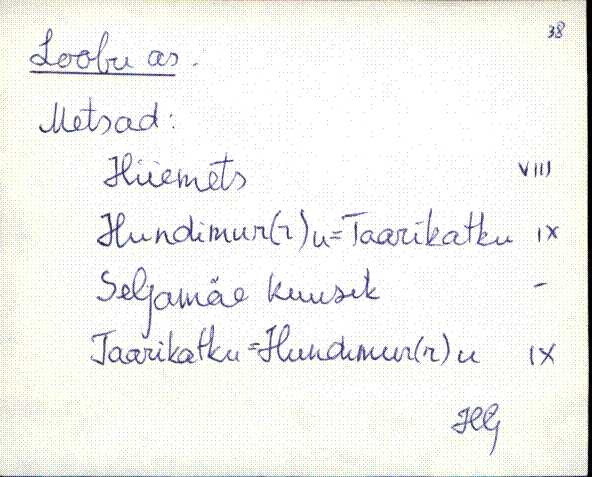 38
Loobu as.
Metsad:
Hiiemets VIII
Hundimur(r)u=Taarikatku IX
Seljamäe kuusik -
Taarikatku=Hundimur(r)u IX
HG